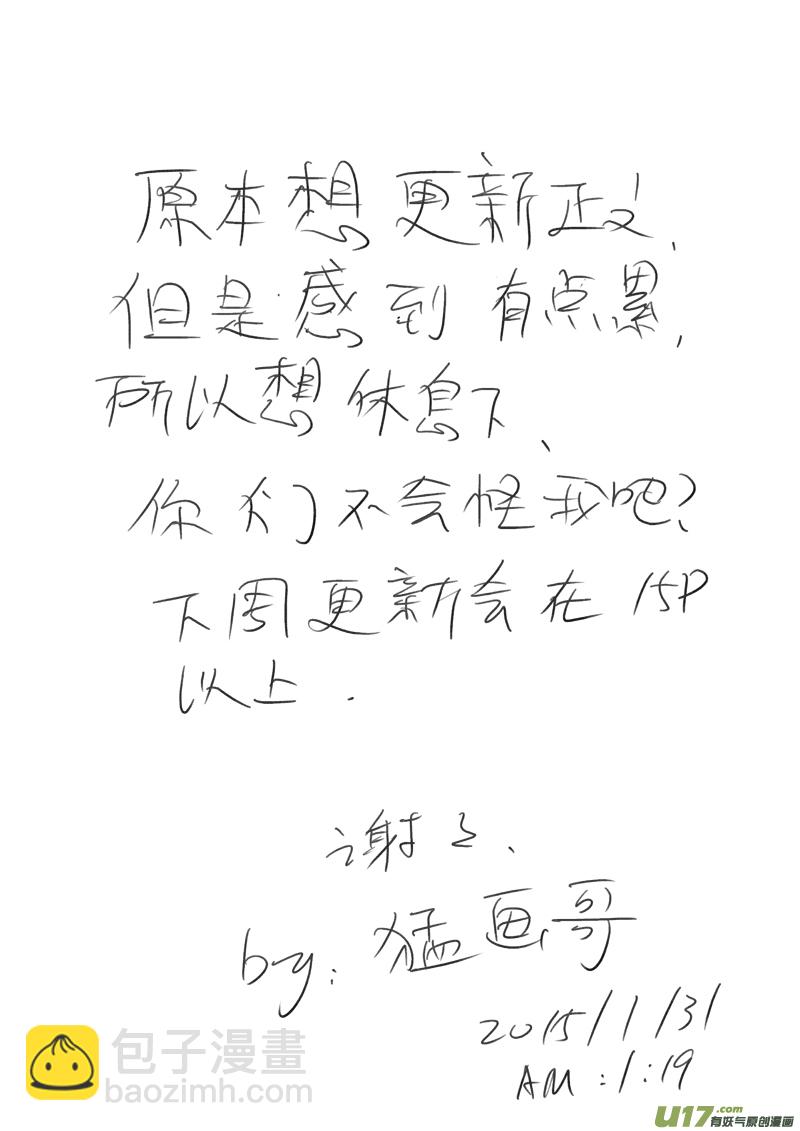 原本想更新正文,
但是感到有点累,
所以想休息下、
你们不会怪我吧?
下周更新会在15P
以上.
谢了.
by:猛画哥
2015/1/31
AM:1:19
包子漫畫
baozimh.com
U17.com
有妖气原创漫画